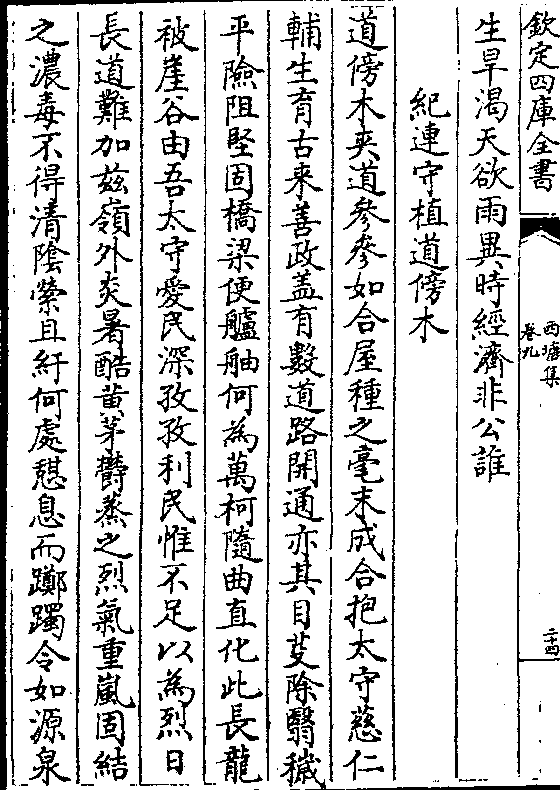 欽定四庫全書
西塘集
卷九
二十四
生旱渴天欲雨異時經濟非公誰
紀連守植道傍木
道傍木夾道參參如合屋種之毫末成合抱太守慈仁
輔生育古來善政盖有數道路開通亦其目芟除翳穢
平險阻堅固橋梁便艫舳何為萬柯隨曲直化此長龍
被崖谷由吾太守愛民深孜孜利民惟不足以為烈日
長道難加兹嶺外炎暑酷黄茅欝蒸之烈氣重嵐固結
之濃毒不得清陰縈且紆何處憇息而躑躅令如源泉